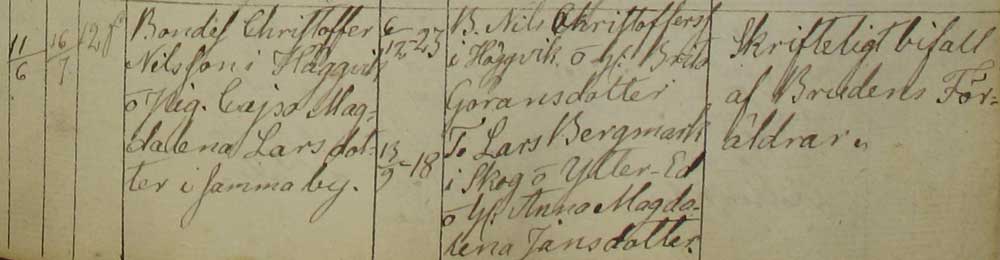 11/6 16/7 12
Bondes. Christoffer
Nilsson i Häggvik
o Pig. Cajsa Mag-
dalena Larsdot-
ter i samma by.
6/12 - 23
13/9 - 18
B. Nils Christoffersf
i Häggvik o H. Brita
Göransdotter
T. Lars Bergmark
i Skog o Ytter-Ed
o H. Anna Magda-
lena Jansdotter.
Skrifteligt bifall
af Brudens För-
äldrar.